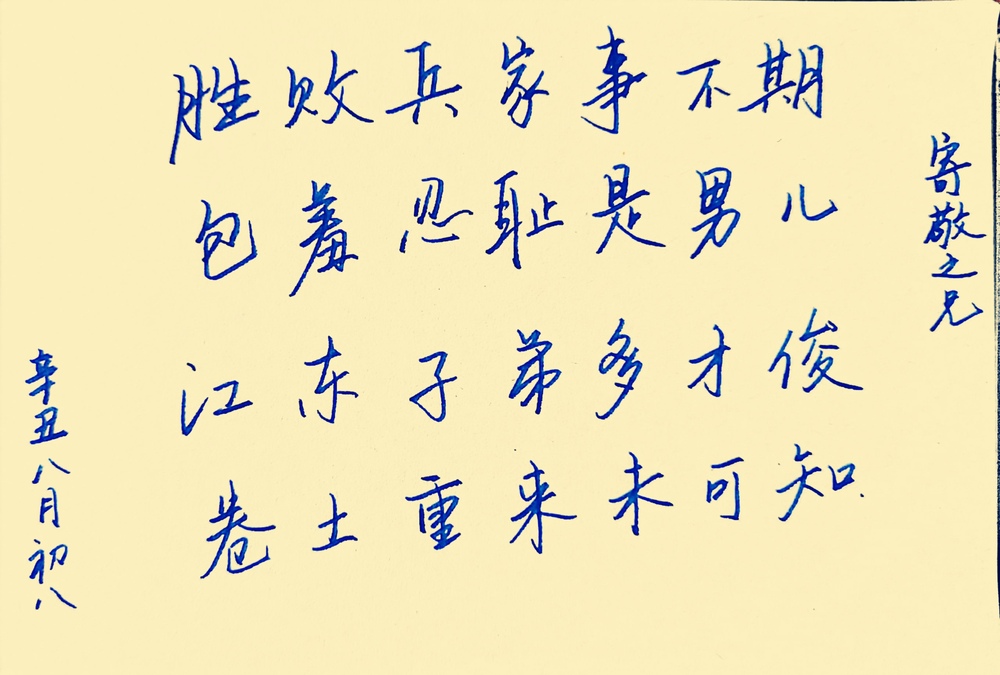 寄敬之兄
胜败兵家事不期
包羞忍耻是男儿
江东子弟多才俊
卷土重来未可知
辛丑八月初八